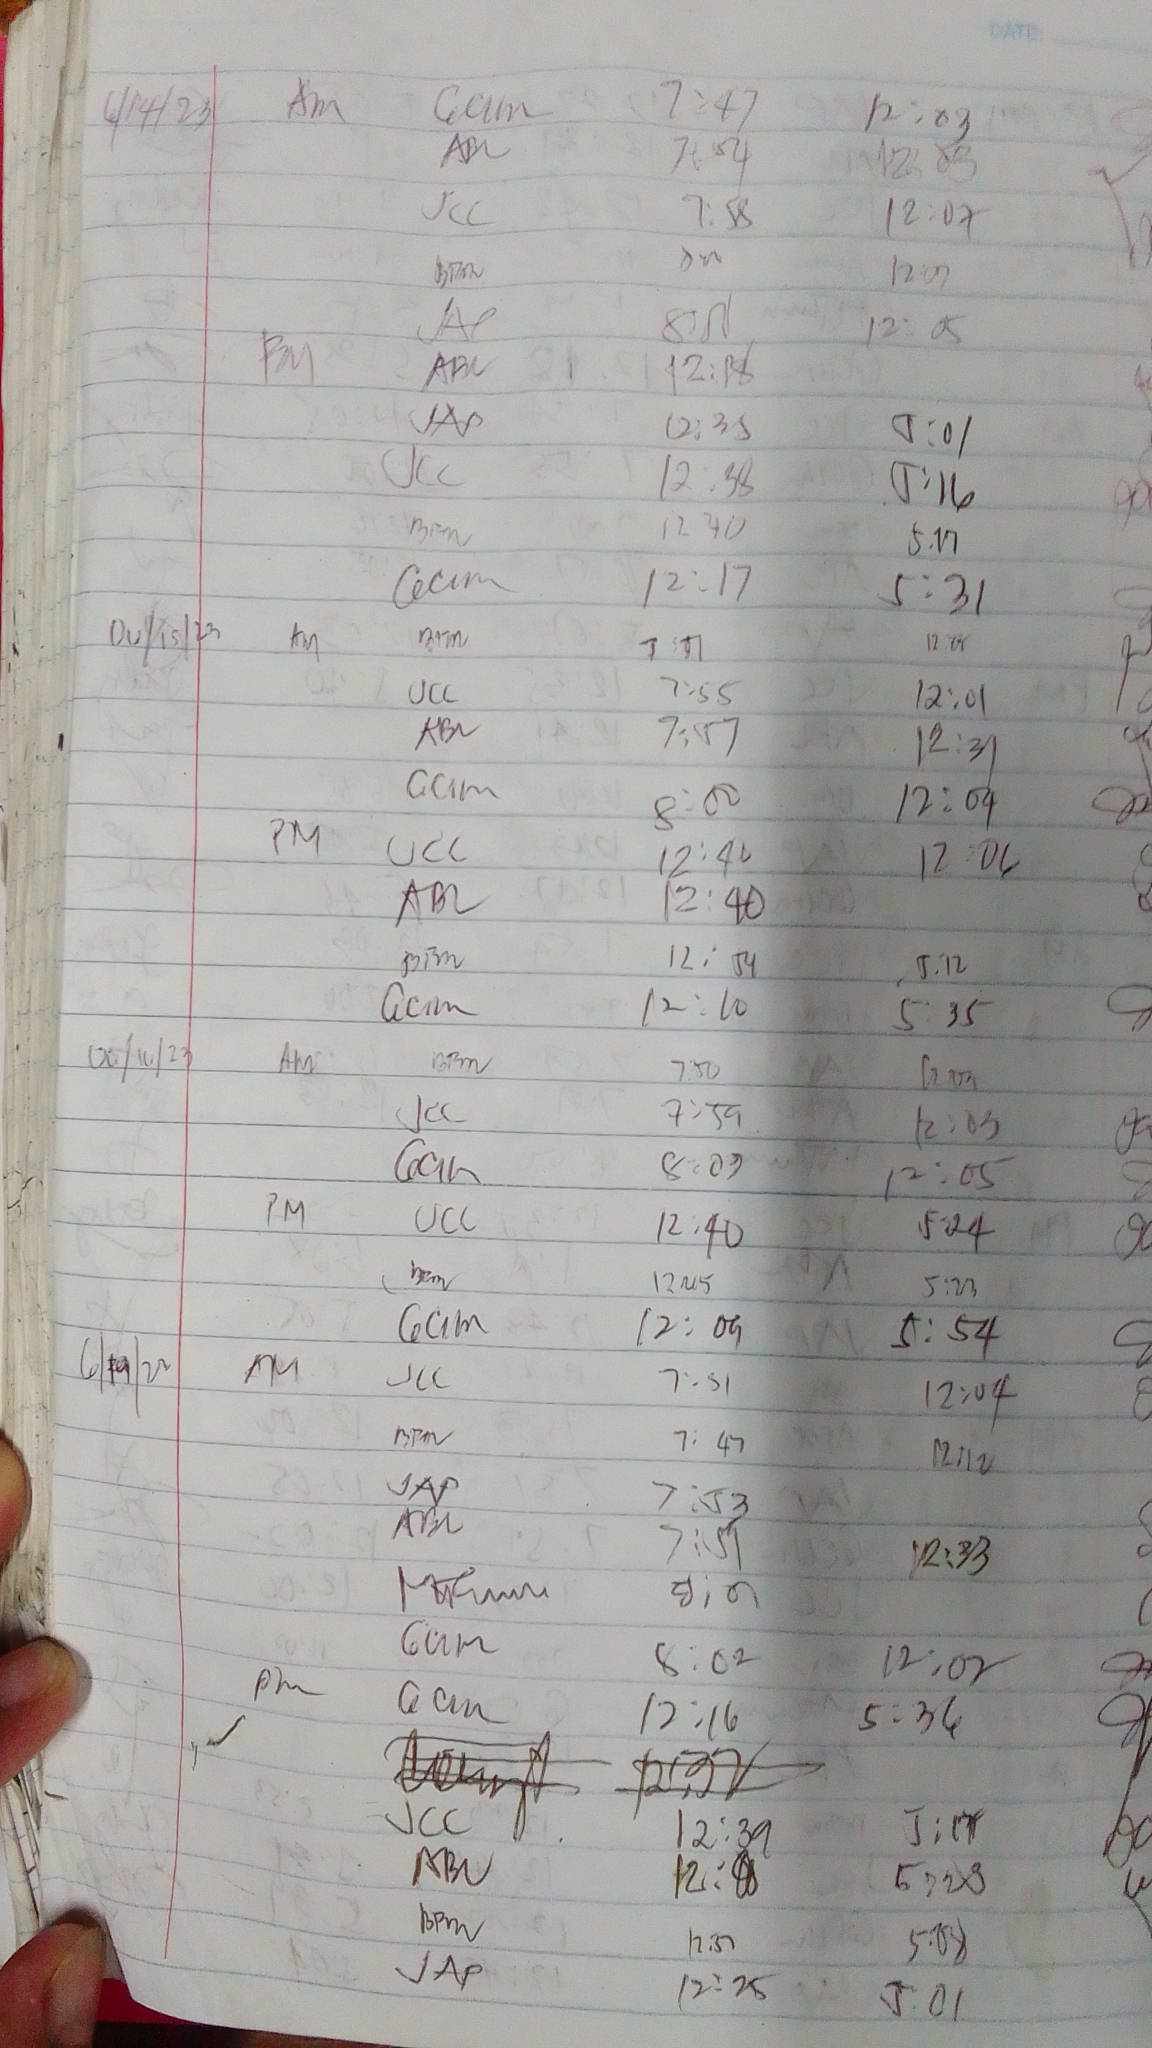 DATE:
6/14/23 AM GCUM 7:47 12:03
ABL 7:54 12:03
JCC 7:58 12:07
BFM 12:07
JAP 12:05
PM ABL 12:18
JAP 12:35 5:01
JCC 12:38 5:16
BFM 12:40 5:17
GCUM 12:17 5:31
06/15/23 AM BFM
JCC 7:55 12:01
ABL 7:57 12:31
GCUM 8:00 12:04
PM JCC 12:40 12:06
ABL 12:40
BFM 12:54 5:12
GCUM 12:10 5:35
06/16/23 AM BFM 7:50 12:03
JCC 7:59 12:03
GCUM 8:03 12:05
PM JCC 12:40 5:24
BFM 12:45 5:23
GCUM 12:09 5:54
AM JCC 7:51 12:04
BFM 7:47 12:12
JAP 7:53
ABL 7:59 12:33
8:01
GCUM 8:02 12:02
PM GCUM 12:16 5:36
JCC 12:39
ABL 5:28
BFM 12:37 5:08
JAP 12:25 5:01